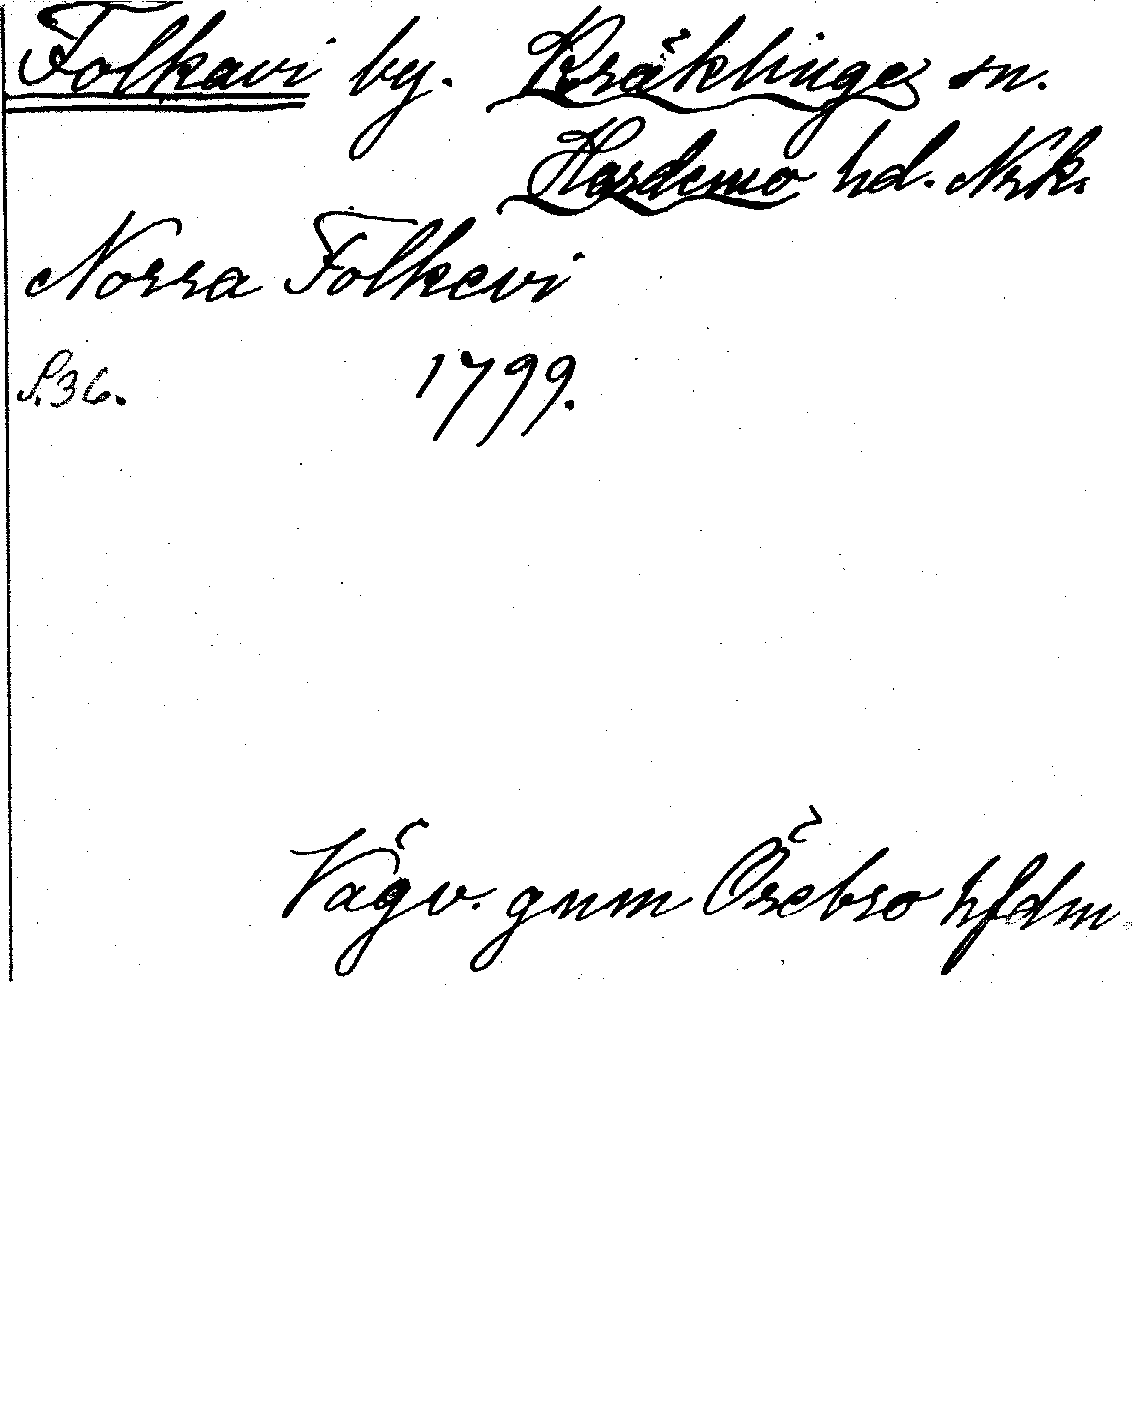 Folkavi by. Kräklinge sn.
Hardemo hd. Nrk.
Norra Folkevi
S. 36. 1799.
Vägv. gnm Örebro hfdm